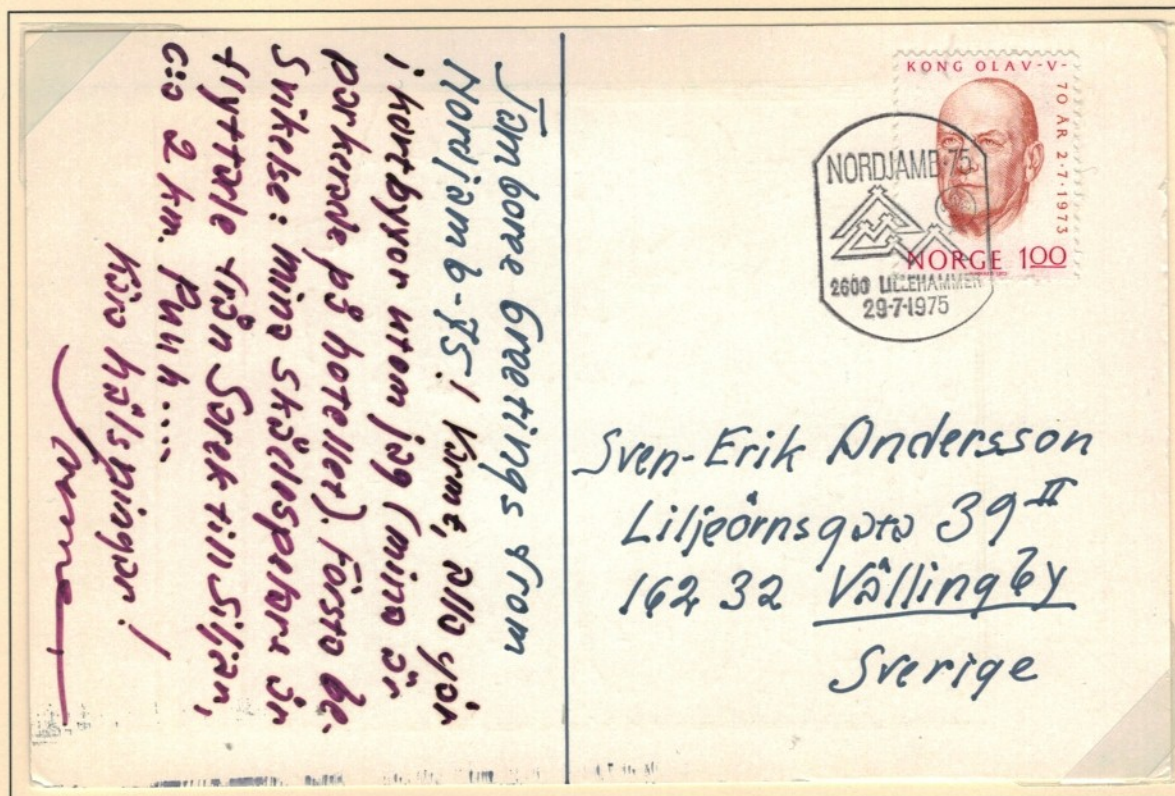 Jamboree Greetings from
Nordjamb-75! Värme, alla går
i kortbyxor utom jag (mina är
parkerade på hotellet). Första be-
svikelse: mina skådespelare är
flyttade från Sarek till Siljan,
c:a 2 km. Puh....
Kära hälsningar!
KONG OLAV-V-
70 ÅR 2·7·1973
NORGE 100
NORDJAMB-75
2600 LILLEHAMMER
29-7-1975
Sven-Erik Andersson
Liljeörnsgata 39 II
162 32 Vällingby
Sverige